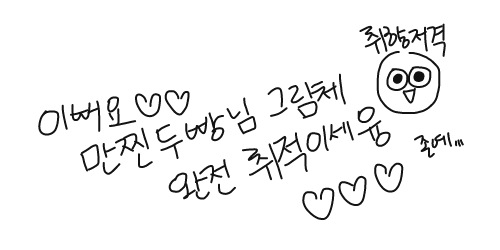 취향저격
이뻐요♡♡
만찐두빵님 그림체
완전 취적이세윰
존예,,,
♡♡♡